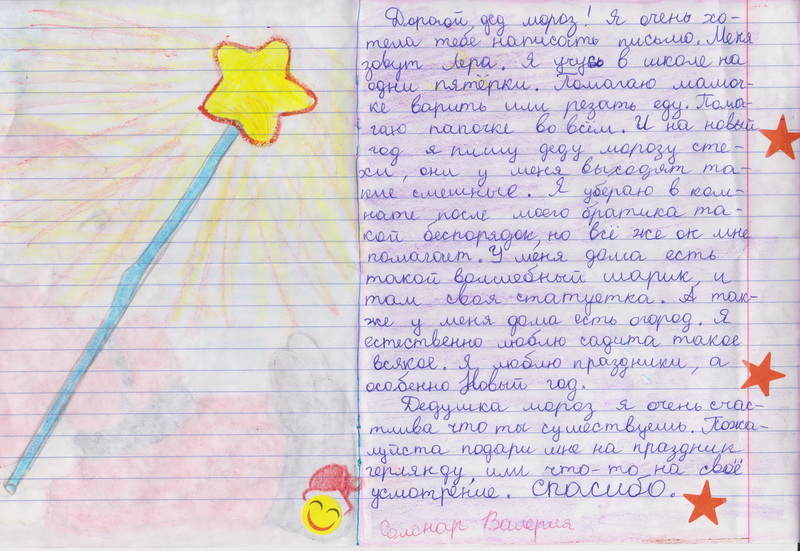 Дорогой, дед мороз! Я очень хо-
тела тебе написать письмо. Меня
зовут Лера. Я учусь в школе на
одни пятёрки. Помагаю мамоч-
ке варить или резать еду. Пома-
гаю папочке во всём. И на новый
год я пишу деду морозу сте-
хи, они у меня выходят та-
кие смешные. Я убераю в ком-
нате после моего братика та-
кой беспорядок, но всё же он мне
помагоит. У меня дома есть
такой волшебный шарик, и
там своя статуетка. А так-
же у меня дома есть огород. Я
естественно люблю садита такое
всякое. Я люблю праздники, а
особенно Новый год.
Дедушка мороз я очень счас-
тлива что ты существуешь. Пожа-
луйста подари мне на праздник
герлянду, или что-то на своё
усмотрение. Спасибо.
Солонар Валерия